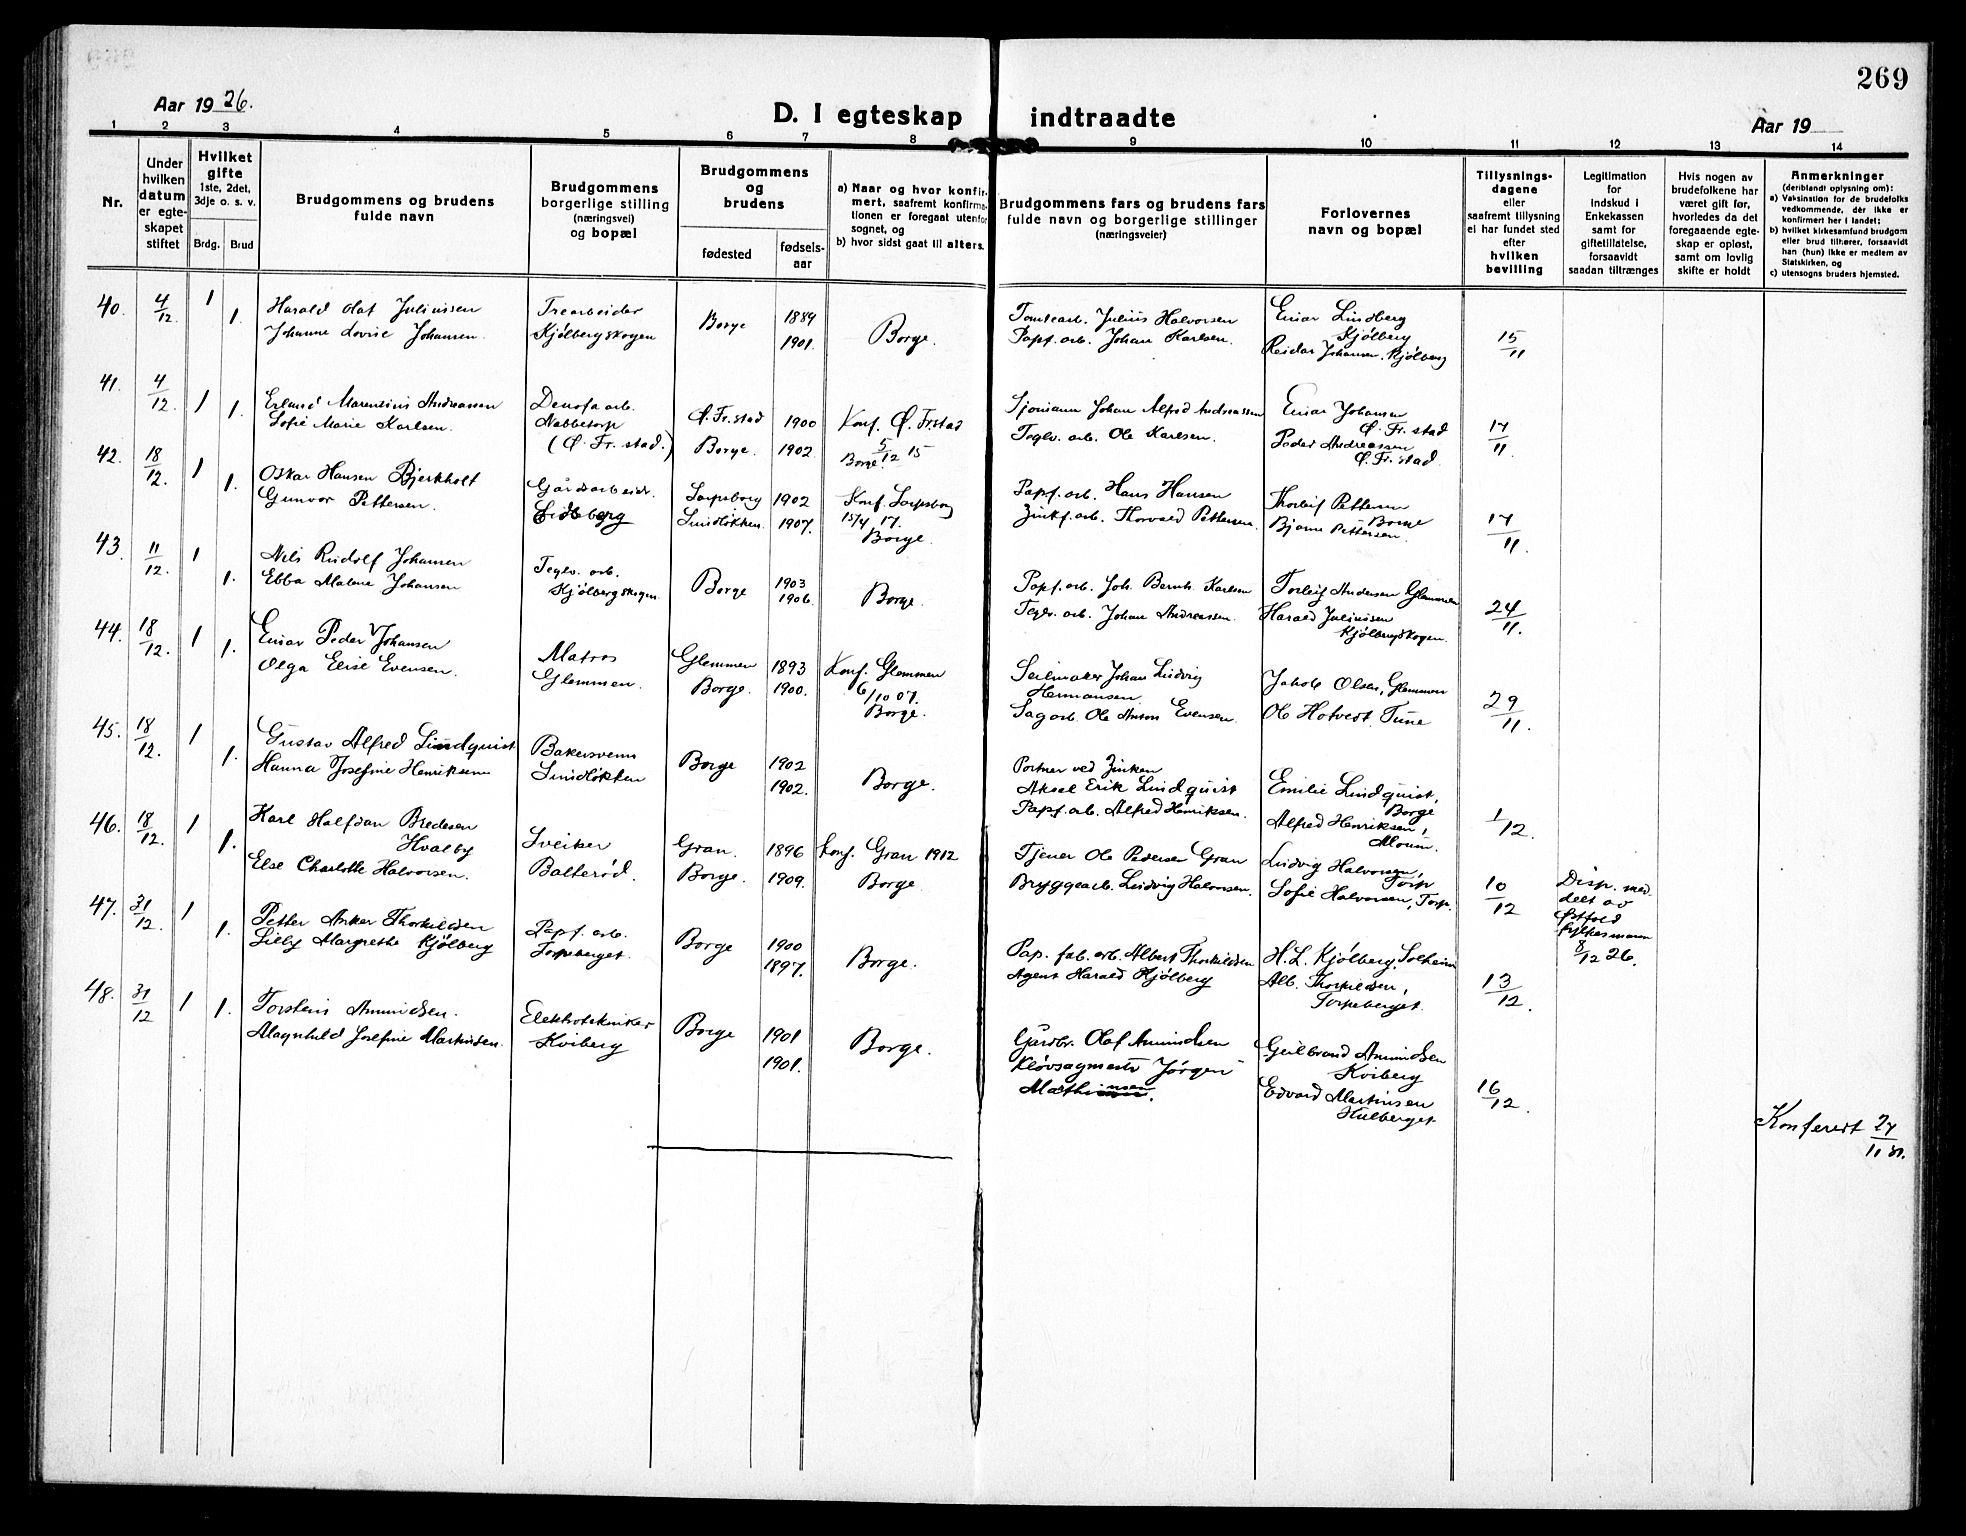 269
Aar 1926.
D. I egteskap indtraadte
Aar 19
1 2 3 4 5 6 7 8 9 10 11 12 13 14
Nr.
Under hvilken datum er egteskapet stiftet
Hvilket gifte
1ste, 2det, 3dje o. s. v.
Brdg. Brud
Brudgommens og brudens fulde navn
Brudgommens borgerlige stilling (næringsvei) og bopæl
Brudgommens og brudens
fødested
fødselsaar
a) Naar og hvor konfirmert, saafremt konfirmationen er foregaat utenfor sognet, og
b) hvor sidst gaat til alters.
Brudgommens fars og brudens fars fulde navn og borgerlige stillinger (næringsveier)
Forlovernes navn og bopæl
Tillysningsdagene eller saafremt tillysning ei har fundet sted efter hvilken bevilling
Legitimation for indskud i Enkekassen samt for giftetillatelse, forsaavidt saadan tiltrænges
Hvis nogen av brudefolkene har været gift før, hvorledes da det foregaaende egteskap er opløst, samt om lovlig skifte er holdt
Anmerkninger
(deriblandt oplysning om):
a) Vaksination for de brudefolks vedkommende, der ikke er konfirmert her i landet;
b) hvilket kirkesamfund brudgom eller brud tilhører, forsaavidt han (hun) ikke er medlem av Statskirken, og
c) utensogns bruders hjemsted.
40. 4/12. 1 1.
Harald Olaf Juliussen
Johanne Lovise Johansen.
Trearbeider
Kjølbergskogen
Borge
1889
1901.
Borge.
Tomtearb. Julius Halvorsen
Papf. arb. Johan Karlsen.
Einar Lindberg
Kjølberg
Reidar Johansen. Kjølberg
15/11
41. 4/12. 1 1.
Erland Marentius Andreassen
Sofie Marie Karlsen.
Denofa arb.
Nabbetorp
(Ø. Fr. stad.)
Ø. Fr. stad 1900
Borge. 1902.
Konf. Ø. Frstad
5/12 15
Borge.
Sjømann Johan Alfred Andreassen
Teglv. arb. Ole Karlsen.
Einar Johansen
Ø. Fr. stad
Peder Andreassen
Ø. Fr. stad.
17/11.
42. 18/12. 1 1.
Oskar Hansen Bjerkholt
Gunvor Pettersen.
Gårdsarbeidr.
Eidsberg
Sarpsborg 1902
Sundløkken. 1907.
Konf. Sarpsborg
15/4 17.
Borge.
Papf. arb. Hans Hansen
Zinkf. arb. Thorvald Pettersen.
Thorleif Pettersen
Borge
Bjarne Pettersen.
17/11.
43. 11/12. 1 1.
Nils Rudolf Johansen
Ebba Malene Johansen
Teglv. arb.
Kjølbergskogen.
Borge
1903
1906.
Borge.
Papf. arb. Joh. Bernh. Karlsen
Teglv. arb. Johan Andreassen.
Torleif Andersen Glemmen
Harald Juliussen
Kjølbergskogen.
24/11.
44. 18/12. 1 1.
Einar Peder Johansen
Olga Elise Evensen.
Matros
Glemmen.
Glemmen 1893
Borge. 1900.
Konf. Glemmen
6/10 07.
Borge.
Seilmaker Johan Ludvig
Hermansen.
Sagarb. Ole Anton Evensen.
Jakob Olsen, Glemmen
Ole Hotvedt. Tune
29/11.
45. 18/12. 1 1.
Gustav Alfred Lindquist
Hanna Josefine Henriksen
Bakersvenn
Sundløkken
Borge
1902
1902.
Borge.
Portner ved Zinken
Aksel Erik Lindquist
Papf. arb. Alfred Henriksen.
Emilie Lindquist,
Borge
Alfred Henriksen,
Moum.
1/12.
46. 18/12. 1 1.
Karl Halfdan Bredesen
Hvalby
Else Charlotte Halvorsen.
Sveiser
Balterød.
Gran. 1896
Borge. 1909.
Konf. Gran 1912
Borge.
Tjener Ole Pedersen Gran
Bryggearb. Ludvig Halvorsen.
Ludvig Halvorsen,
Torp
Sofie Halvorsen, Torp.
10/12
Disp. meddelt av
Østfold
fylkesmann
8/12 26.
47. 31/12. 1 1.
Petter Anker Thorkildsen
Lilly Margrethe Kjølberg
Papf. arb.
Torpeberget.
Borge
1900
1897.
Borge.
Pap. fab. arb. Albert Thorkildsen
Agent Harald Kjølberg
H. L. Kjølberg, Solheim
Alb. Thorkildsen,
Torpeberget.
13/12.
48. 31/12 1 1.
Torstein Amundsen.
Magnhild Josefine Martinsen.
Elektrotekniker
Kviberg
Borge
1901
1901.
Borge.
Gårdbr. Olaf Amundsen
Kløvsagmester Jørgen
Mathinsen.
Geilbrand Amundsen
Kviberg
Edvard Martinsen
Hulberget.
16/12.
Konferert 27/11 31.